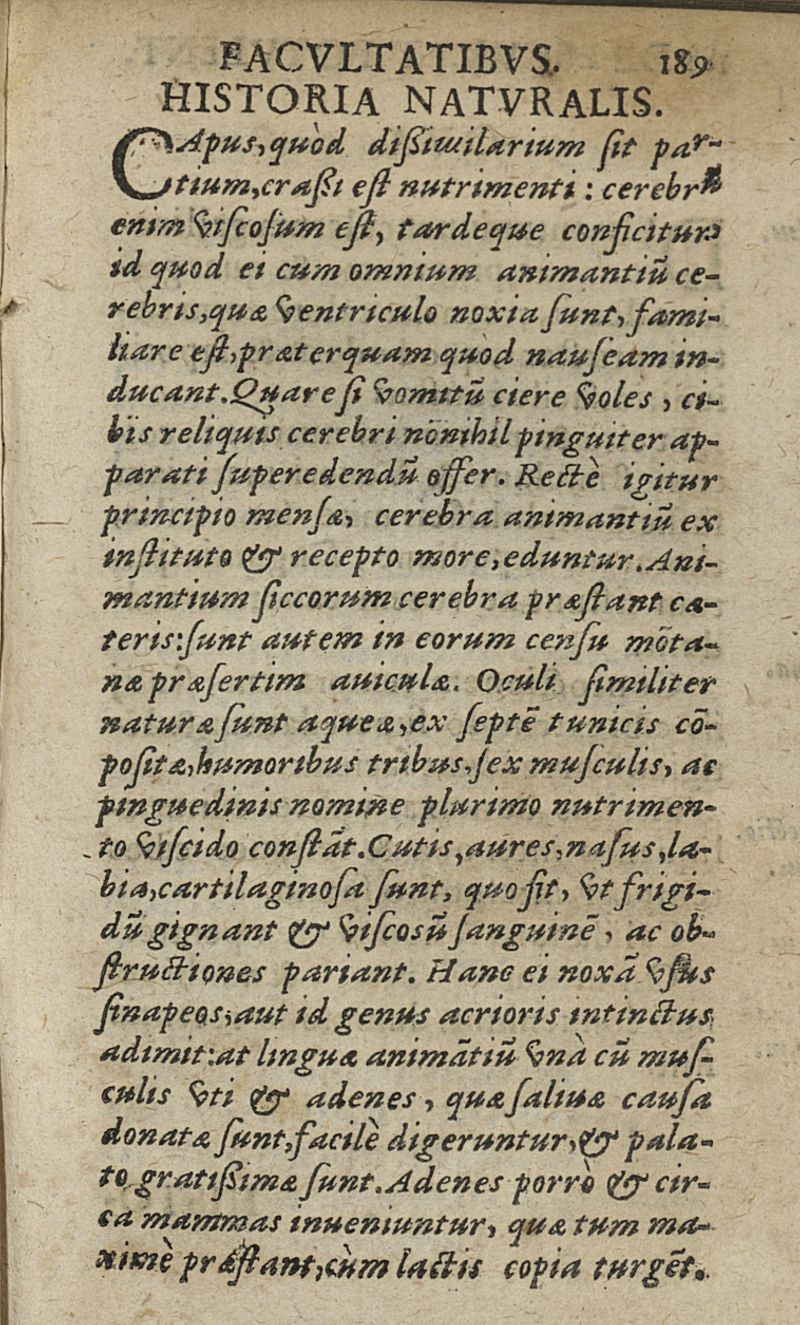 FACVLTATIBVS. 189
HISTORIA NATVRALIS.
CApus,quòd dißimilarium ſit par-
tium,craßi eſt nutrimenti : cerebrū
enim viſcoſum eſt, tardeque conficitur:
id quod ei cum omnium animantiū ce-
rebris,quæ ventriculo noxia ſunt, fami-
liare eſt,præterquam quòd nauſeam in-
ducant.Quare ſi vomitū ciere voles , ci-
bis reliquis cerebri nōnihil pinguiter ap-
parati ſuperedendū offer. Rectè igitur
principio menſæ, cerebra animantiū ex
inſtituto & recepto more,eduntur.Ani-
mantium ſiccorum cerebra præſtant cæ-
teris:ſunt autem in eorum cenſu mōta-
næ præſertim auiculæ. Oculi ſimiliter
naturæ ſunt aqueæ,ex ſeptē tunicis cō-
poſitæ,humoribus tribus,ſex muſculis, ac
pinguedinis nomine plurimo nutrimen-
to viſcido conſtāt.Cutis,aures,naſus,la-
bia,cartilaginoſa ſunt, quo fit, vt frigi-
dū gignant & viſcosū ſanguinē , ac ob-
ſtructiones pariant. Hanc ei noxā vſus
ſinapeos,aut id genus acrioris intinctus
adimit:at linguæ animātiū vnà cū muſ-
culis vti & adenes , quæ ſaliuæ cauſa
donatæ ſunt,facilè digeruntur,& pala-
to gratißimæ ſunt.Adenes porrò & cir-
ca mammas inueniuntur, quæ tum ma-
ximè præſtant,cùm lactis copia turgēt.